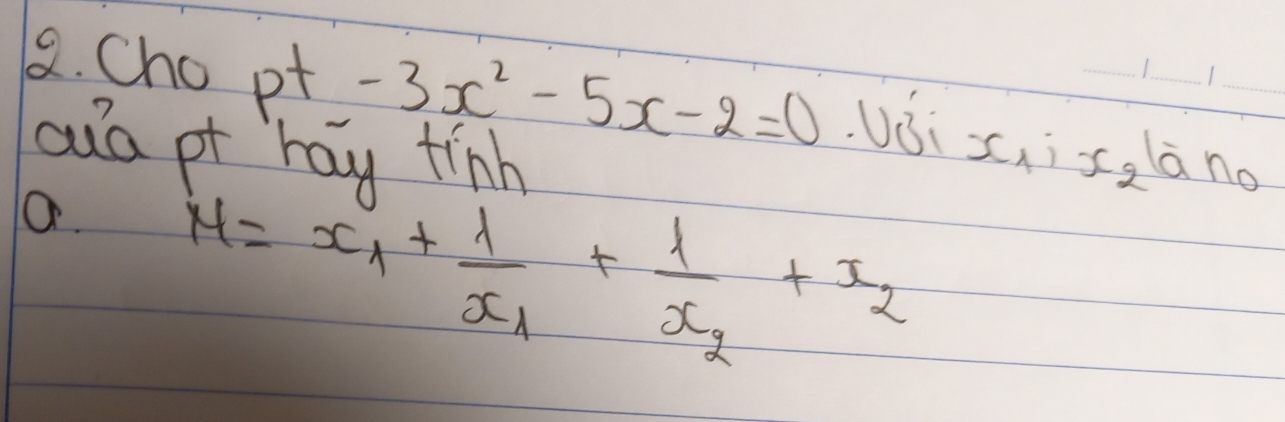 2. Cho pt -3x² - 5x - 2 = 0. Với x₁; x₂ là no
của pt hãy tính
a. M = x₁ + 1/x₁ + 1/x₂ + x₂